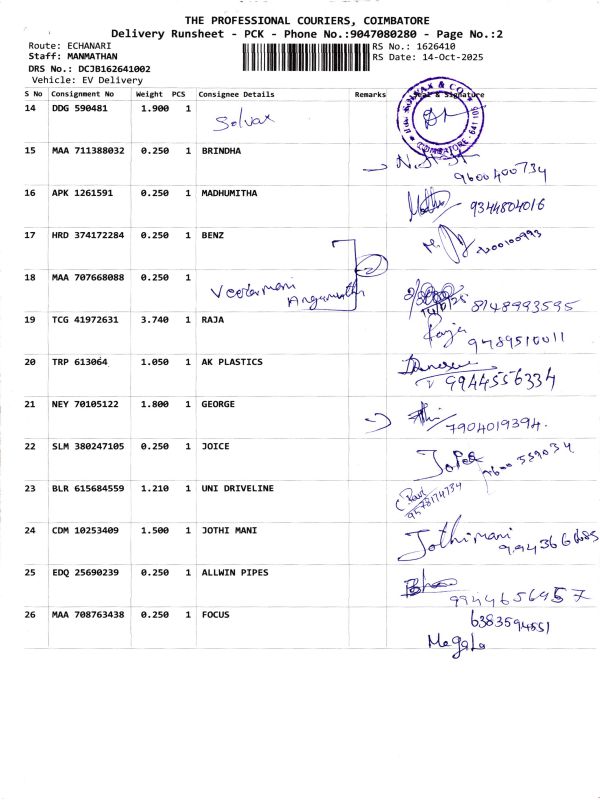 THE PROFESSIONAL COURIERS, COIMBATORE
Delivery Runsheet - PCK - Phone No.:9047080280 - Page No.:2
Route: ECHANARI RS No.: 1626410
Staff: MANMATHAN RS Date: 14-Oct-2025
DRS No.: DCJB162641002
Vehicle: EV Delivery
S No Consignment No Weight PCS Consignee Details Remarks Seal & Signature
14 DDG 590481 1.900 1 Solvax
15 MAA 711388032 0.250 1 BRINDHA 9600400734
16 APK 1261591 0.250 1 MADHUMITHA 9344804016
17 HRD 374172284 0.250 1 BENZ
18 MAA 707668088 0.250 1 Veeramani 8148993595
19 TCG 41972631 3.740 1 RAJA Raja 9789510011
20 TRP 613064 1.050 1 AK PLASTICS 9944556334
21 NEY 70105122 1.800 1 GEORGE 7904019394.
22 SLM 380247105 0.250 1 JOICE
23 BLR 615684559 1.210 1 UNI DRIVELINE 9578174734
24 CDM 10253409 1.500 1 JOTHI MANI Jothimani
25 EDQ 25690239 0.250 1 ALLWIN PIPES 9944656957
26 MAA 708763438 0.250 1 FOCUS 6383594551
Megala